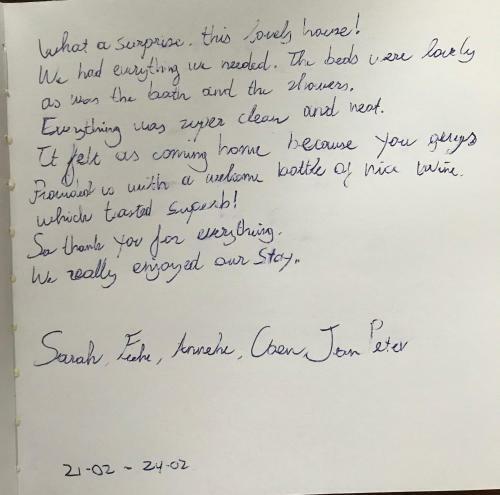 What a surprise, this lovely house!
We had everything we needed. The beds were lovely
as was the bath and the showers.
Everything was super clean and neat.
It felt as coming home because you guys
Provided us with a welcome bottle of nice wine.
which tasted superb!
So thank you for everything.
We really enjoyed our stay.
Sarah, Anneke, Coen, Jan Peter
21-02 - 24-02